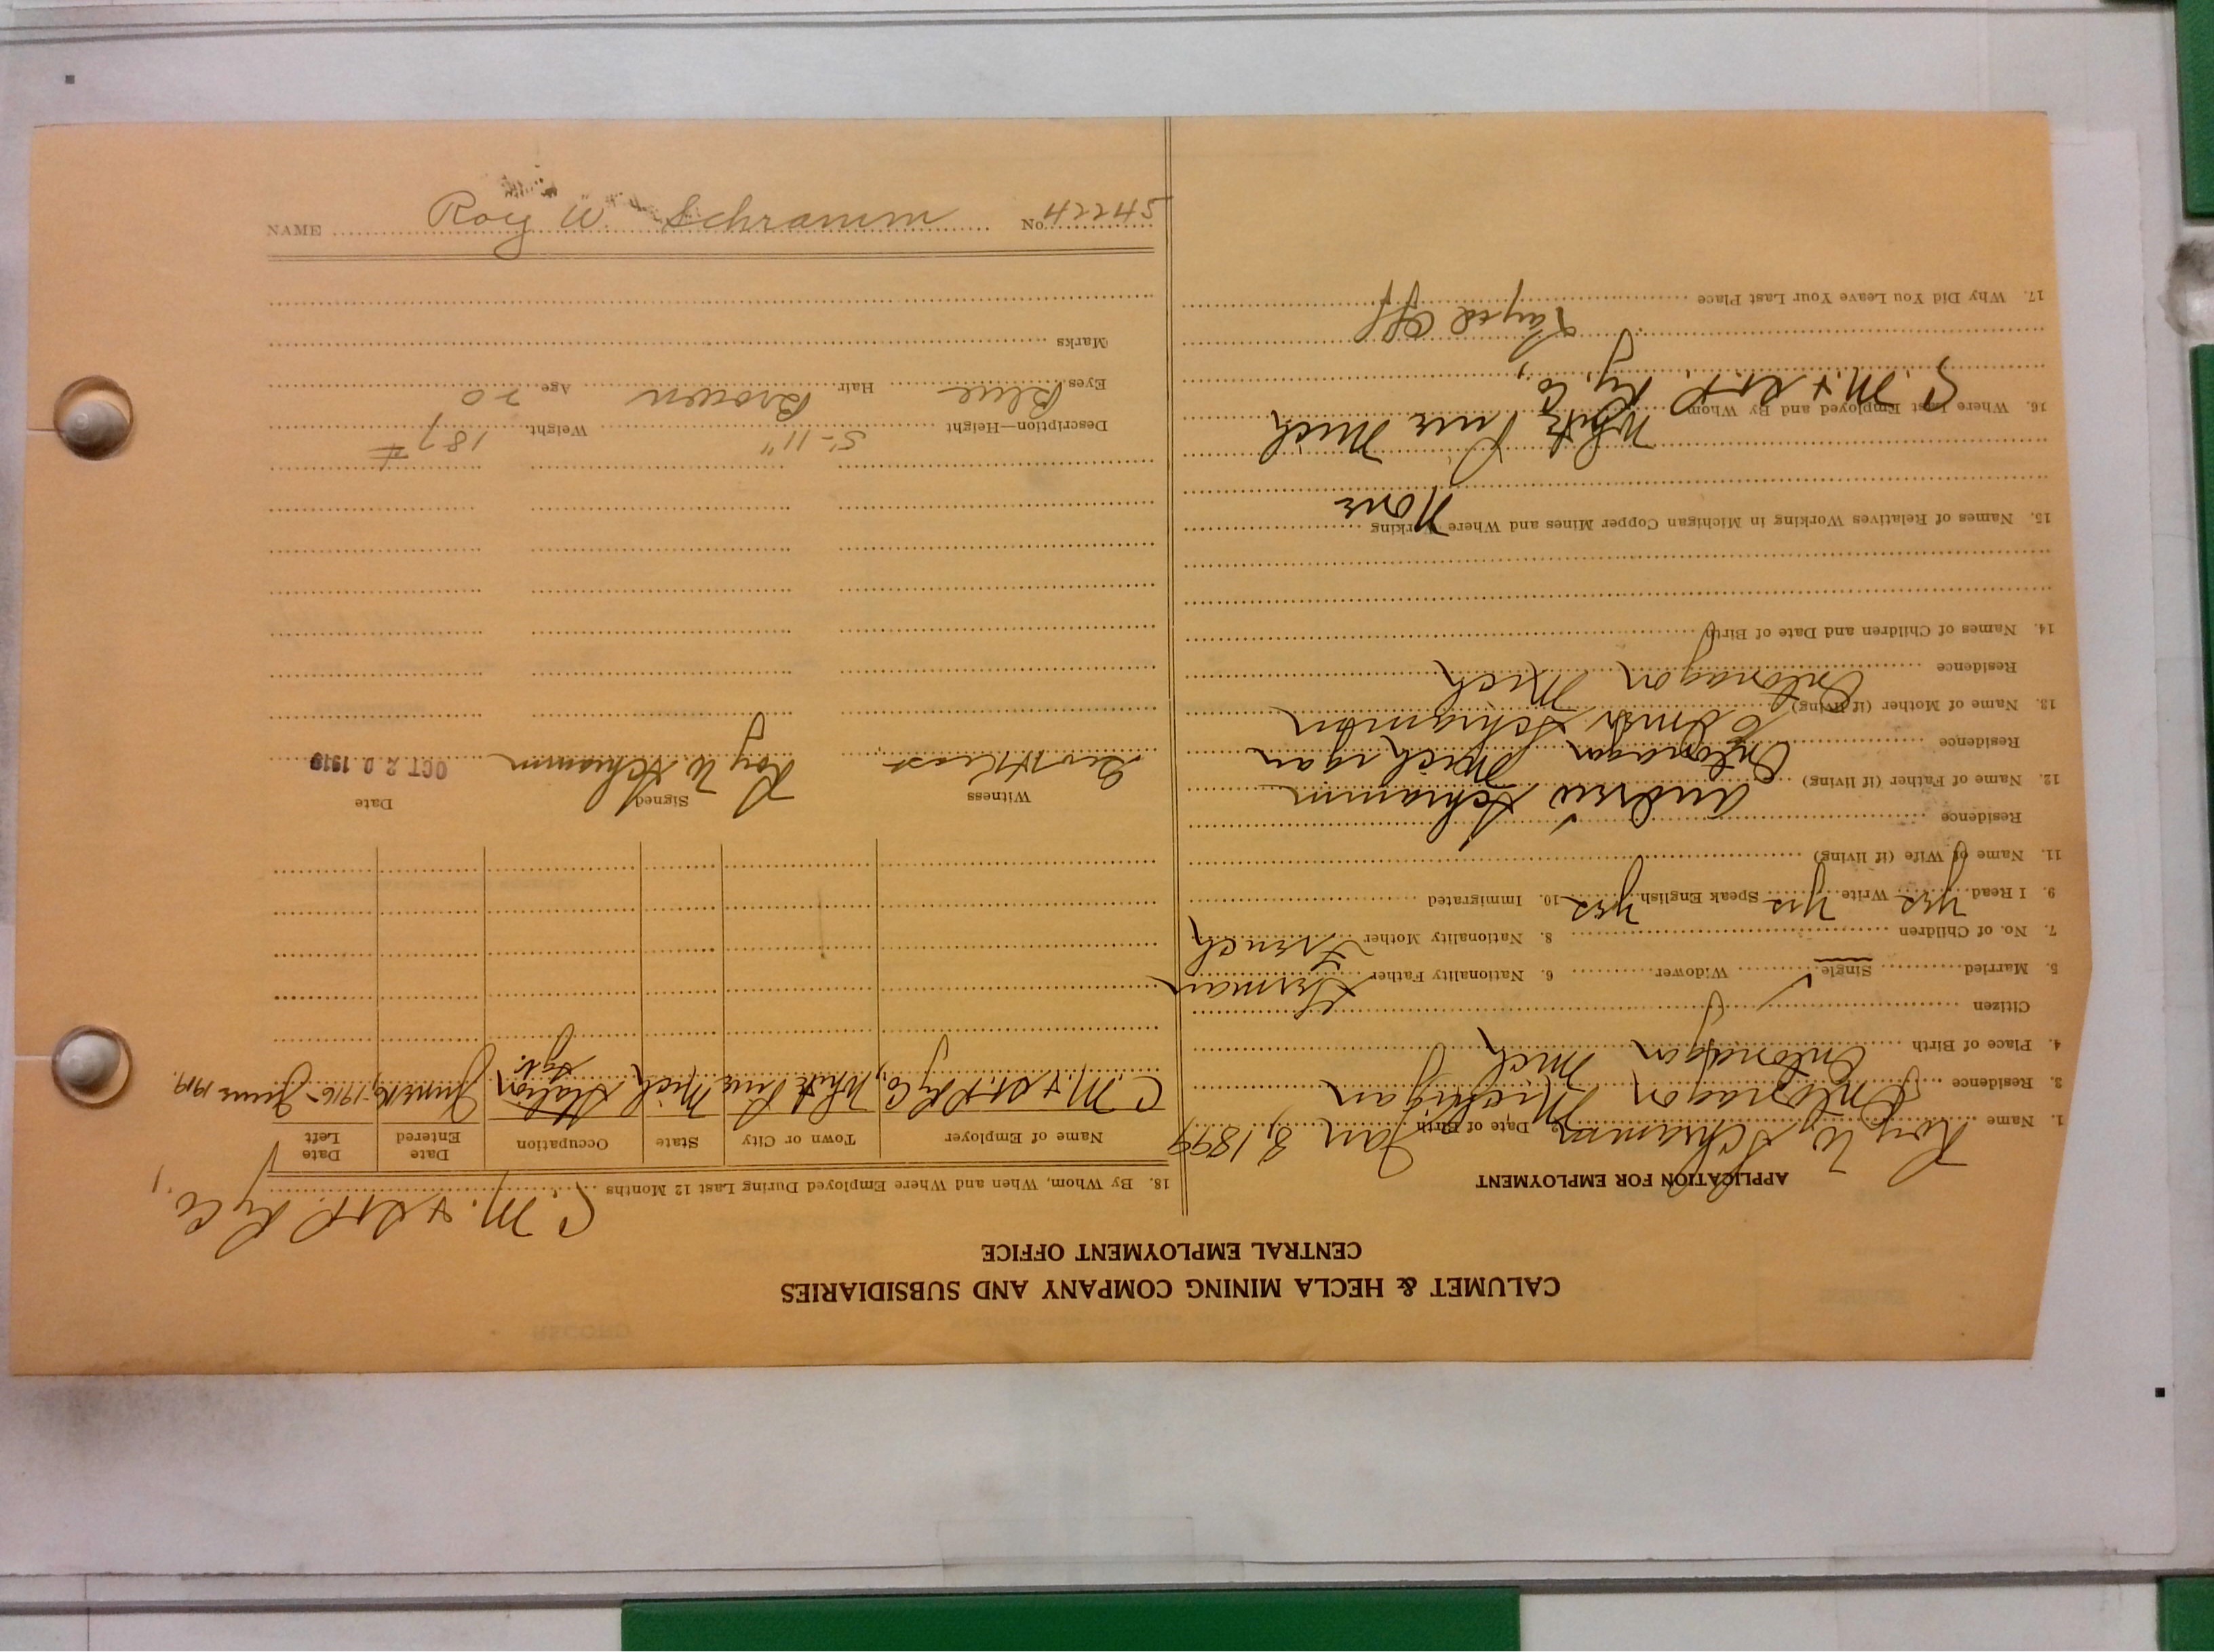 CALUMET & HECLA MINING COMPANY AND SUBSIDIARIES
CENTRAL EMPLOYMENT OFFICE
APPLICATION FOR EMPLOYMENT
1. Name Roy W Schramm 2. Date of Birth Jan 8, 1899
3. Residence Ontonagon Michigan
4. Place of Birth Ontonagon Mich
Citizen
5. Married Single Widower 6. Nationality Father German
7. No. of Children 8. Nationality Mother French
9. I Read yes Write yes Speak English yes 10. Immigrated
11. Name of Wife (if living)
Residence
12. Name of Father (if living) Andrew Schramm
Residence Ontonagon Michigan
13. Name of Mother (if living) Schramm
Residence Ontonagon Mich
14. Names of Children and Date of Birth
15. Names of Relatives Working in Michigan Copper Mines and Where Working None
White Pine Mich
16. Where Last Employed and By Whom C. M. & St. P. Ry. Co.,
17. Why Did You Leave Your Last Place Layed Off
18. By Whom, When and Where Employed During Last 12 Months C. M. & St. P Ry Co.,
Name of Employer Town or City State Occupation Date Entered Date Left
C. M. & St. P Ry Co., White Pine Mich Station Agt. June 16, 1916 - June 1919.
Witness Signed Date
Roy W. Schramm OCT 22 1919
Description—Height 5-11" Weight 187 #
Eyes Blue Hair Brown Age 20
Marks
NAME Roy W. Schramm No. 42245